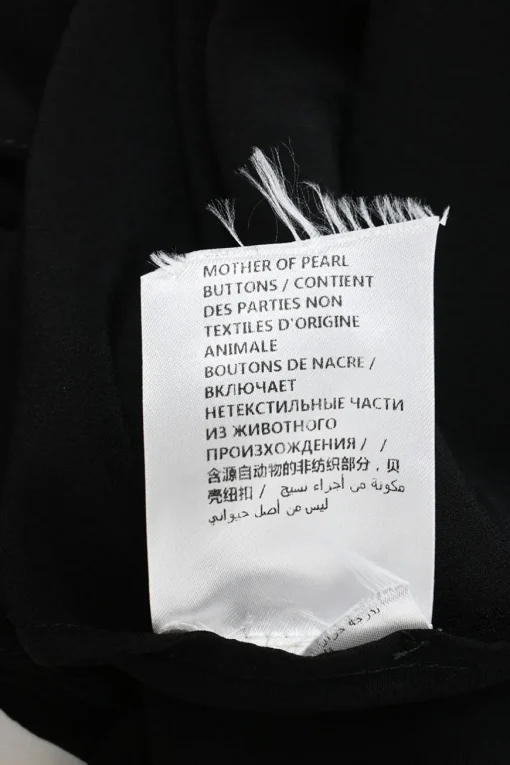 MOTHER OF PEARL
BUTTONS / CONTIENT
DES PARTIES NON
TEXTILES D'ORIGINE
ANIMALE
BOUTONS DE NACRE /
ВКЛЮЧАЕТ
НЕТЕКСТИЛЬНЫЕ ЧАСТИ
ИЗ ЖИВОТНОГО
ПРОИЗХОЖДЕНИЯ / /
含源自动物的非纺织部分，贝
壳纽扣 / مكونة من أجزاء نسيج
ليس من أصل حيواني